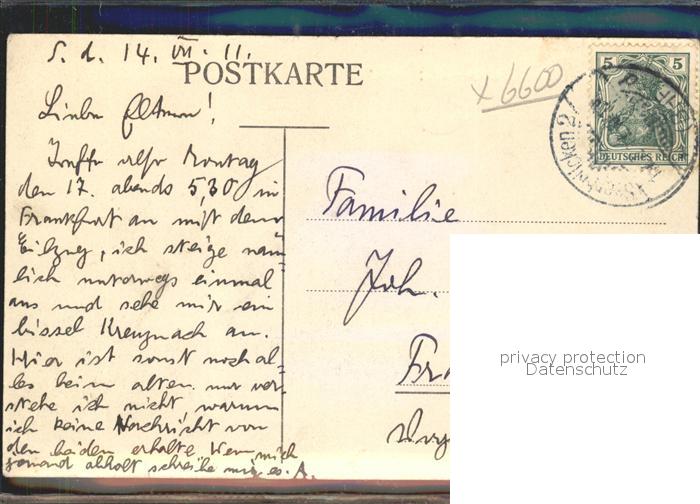 S. d. 14. VII. 11.
POSTKARTE
x 6600
5 5
DEUTSCHES REICH
Saarbrücken 2
Lieben Eltern!
Treffe also Montag
den 17. abends 5,30 in
Frankfurt an mit dem
Eilzug, ich steige näm-
lich unterwegs einmal
aus und sehe mir ein
bissel Kreuznach an.
Hier ist sonst noch al-
les beim alten. nur ver-
stehe ich nicht, warum
ich keine Nachricht von
den beiden erhalte. Wenn mich
jemand abholt schreibe mir es. A.
Familie
Joh.
Fra
privacy protection
Datenschutz